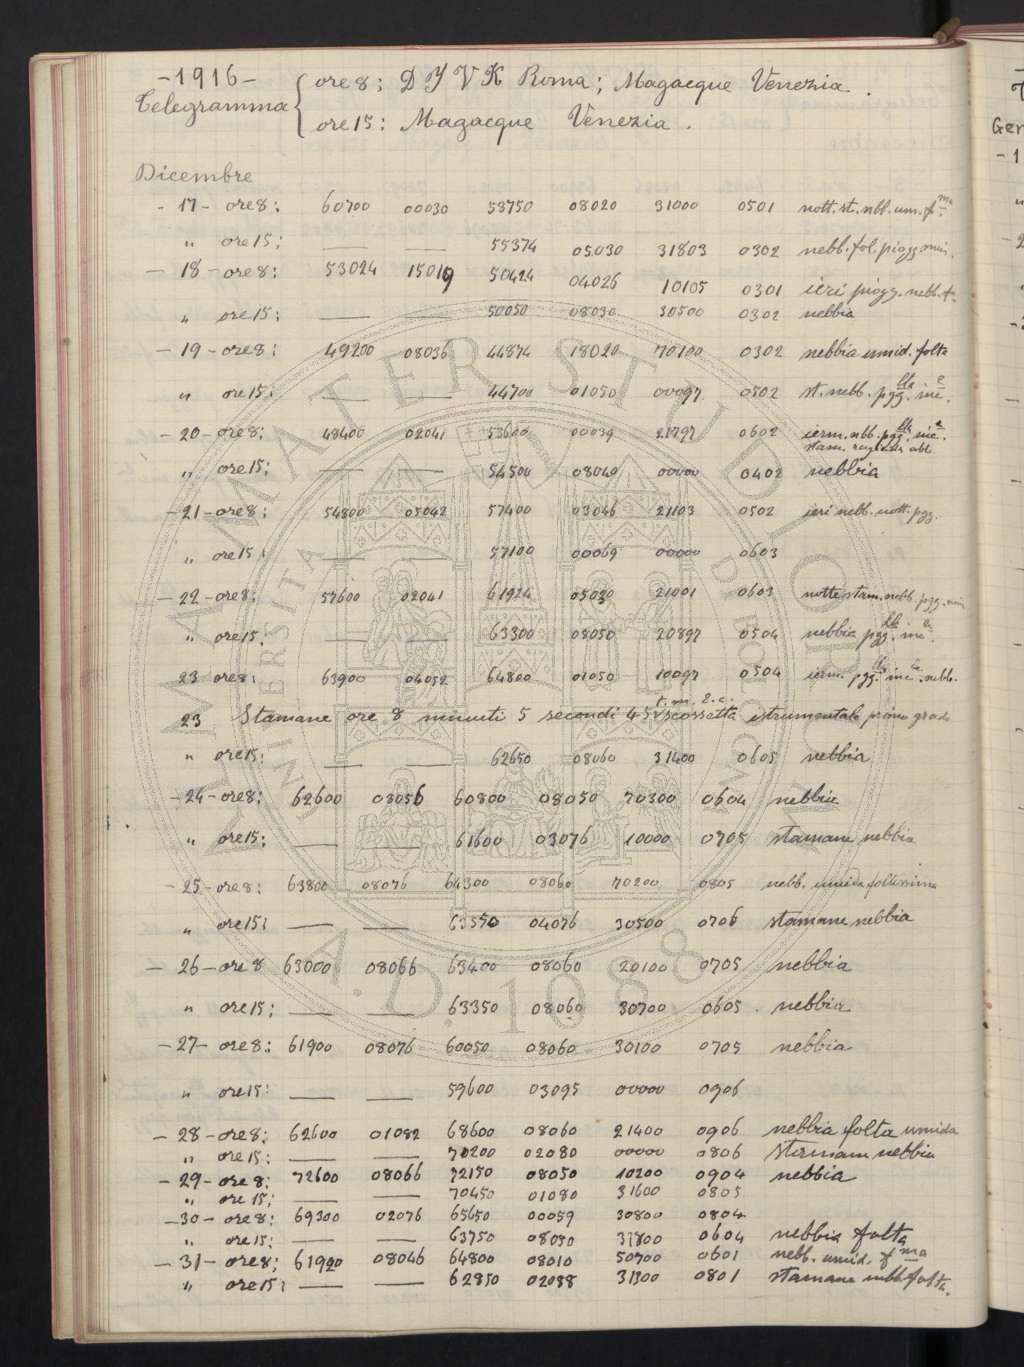 -1916-
Telegramma
ore 8: D Y V K Roma; Magacque Venezia.
ore 15: Magacque Venezia.
Dicembre
- 17 - ore 8: 60700 00030 58750 08020 31000 0501 nott. st. nbb. um. fma
" ore 15: — — 55374 05030 31803 0302 nebb. fol. piogg. min.
- 18 - ore 8: 53024 15019 50424 04026 10105 0301 ieri piogg. nebb. f.
" ore 15: — — 50050 08030 30500 0302 nebbia
- 19 - ore 8: 49200 08036 44874 18020 70100 0302 nebbia umid. folta
" ore 15: — — 44700 01050 00097 0502 st. nebb. pgglla. ine.
- 20 - ore 8: 48400 02041 53600 00039 21797 0602 ierm. nbb. pgglla. ine.
stam. abb.
" ore 15: — — 54500 08040 00000 0402 nebbia
- 21 - ore 8: 54800 05042 57400 03046 21103 0502 ieri nebb. nott. pgg.
" ore 15: — — 57100 00069 00000 0603
- 22 - ore 8: 57600 02041 61924 05030 21001 0603 notte stam. nebb. pgg. min
" ore 15: — — 63300 08050 20897 0504 nebbia pgglla. ine.
23 ore 8: 63900 04052 64800 01050 10097 0504 ierm. pgglla. ine. nebb.
23 Stamane ore 8 minuti 5 secondi 45 t. m. E. C. scossetta istrumentale primo grado
" ore 15: — — 62650 08060 31400 0605 nebbia
- 24 - ore 8: 62600 03056 60800 08050 70300 0604 nebbia
" ore 15: — — 61600 03076 10000 0705 stamane nebbia
- 25 - ore 8: 63800 08076 64300 08060 70200 0805 nebb. umida foltissima
" ore 15: — — 63550 04076 30500 0706 stamane nebbia
- 26 - ore 8 63000 08066 63400 08060 20100 0705 nebbia
" ore 15: — — 63350 08060 30700 0605 . nebbia
- 27 - ore 8: 61900 08076 60050 08060 30100 0705 nebbia
" ore 15: — — 59600 03095 00000 0906
- 28 - ore 8: 62600 01082 68600 08060 21400 0906 nebbia folta umida
" ore 15: — — 70200 02080 00000 0806 stamane nebbia
- 29 - ore 8: 72600 08066 72150 08050 10200 0904 nebbia
" ore 15: — — 70450 01080 31600 0805
- 30 - ore 8: 69300 02076 65650 00059 30800 0804
" ore 15: — — 63750 08030 31800 0604 nebbia folta
- 31 - ore 8: 61920 08046 64800 08010 50700 0601 nebb. umid. fma
" ore 15: — — 62850 02088 31300 0801 stamane nebb. folta.
ALMA MATER STUDIORUM
A.D. 1088
Gen